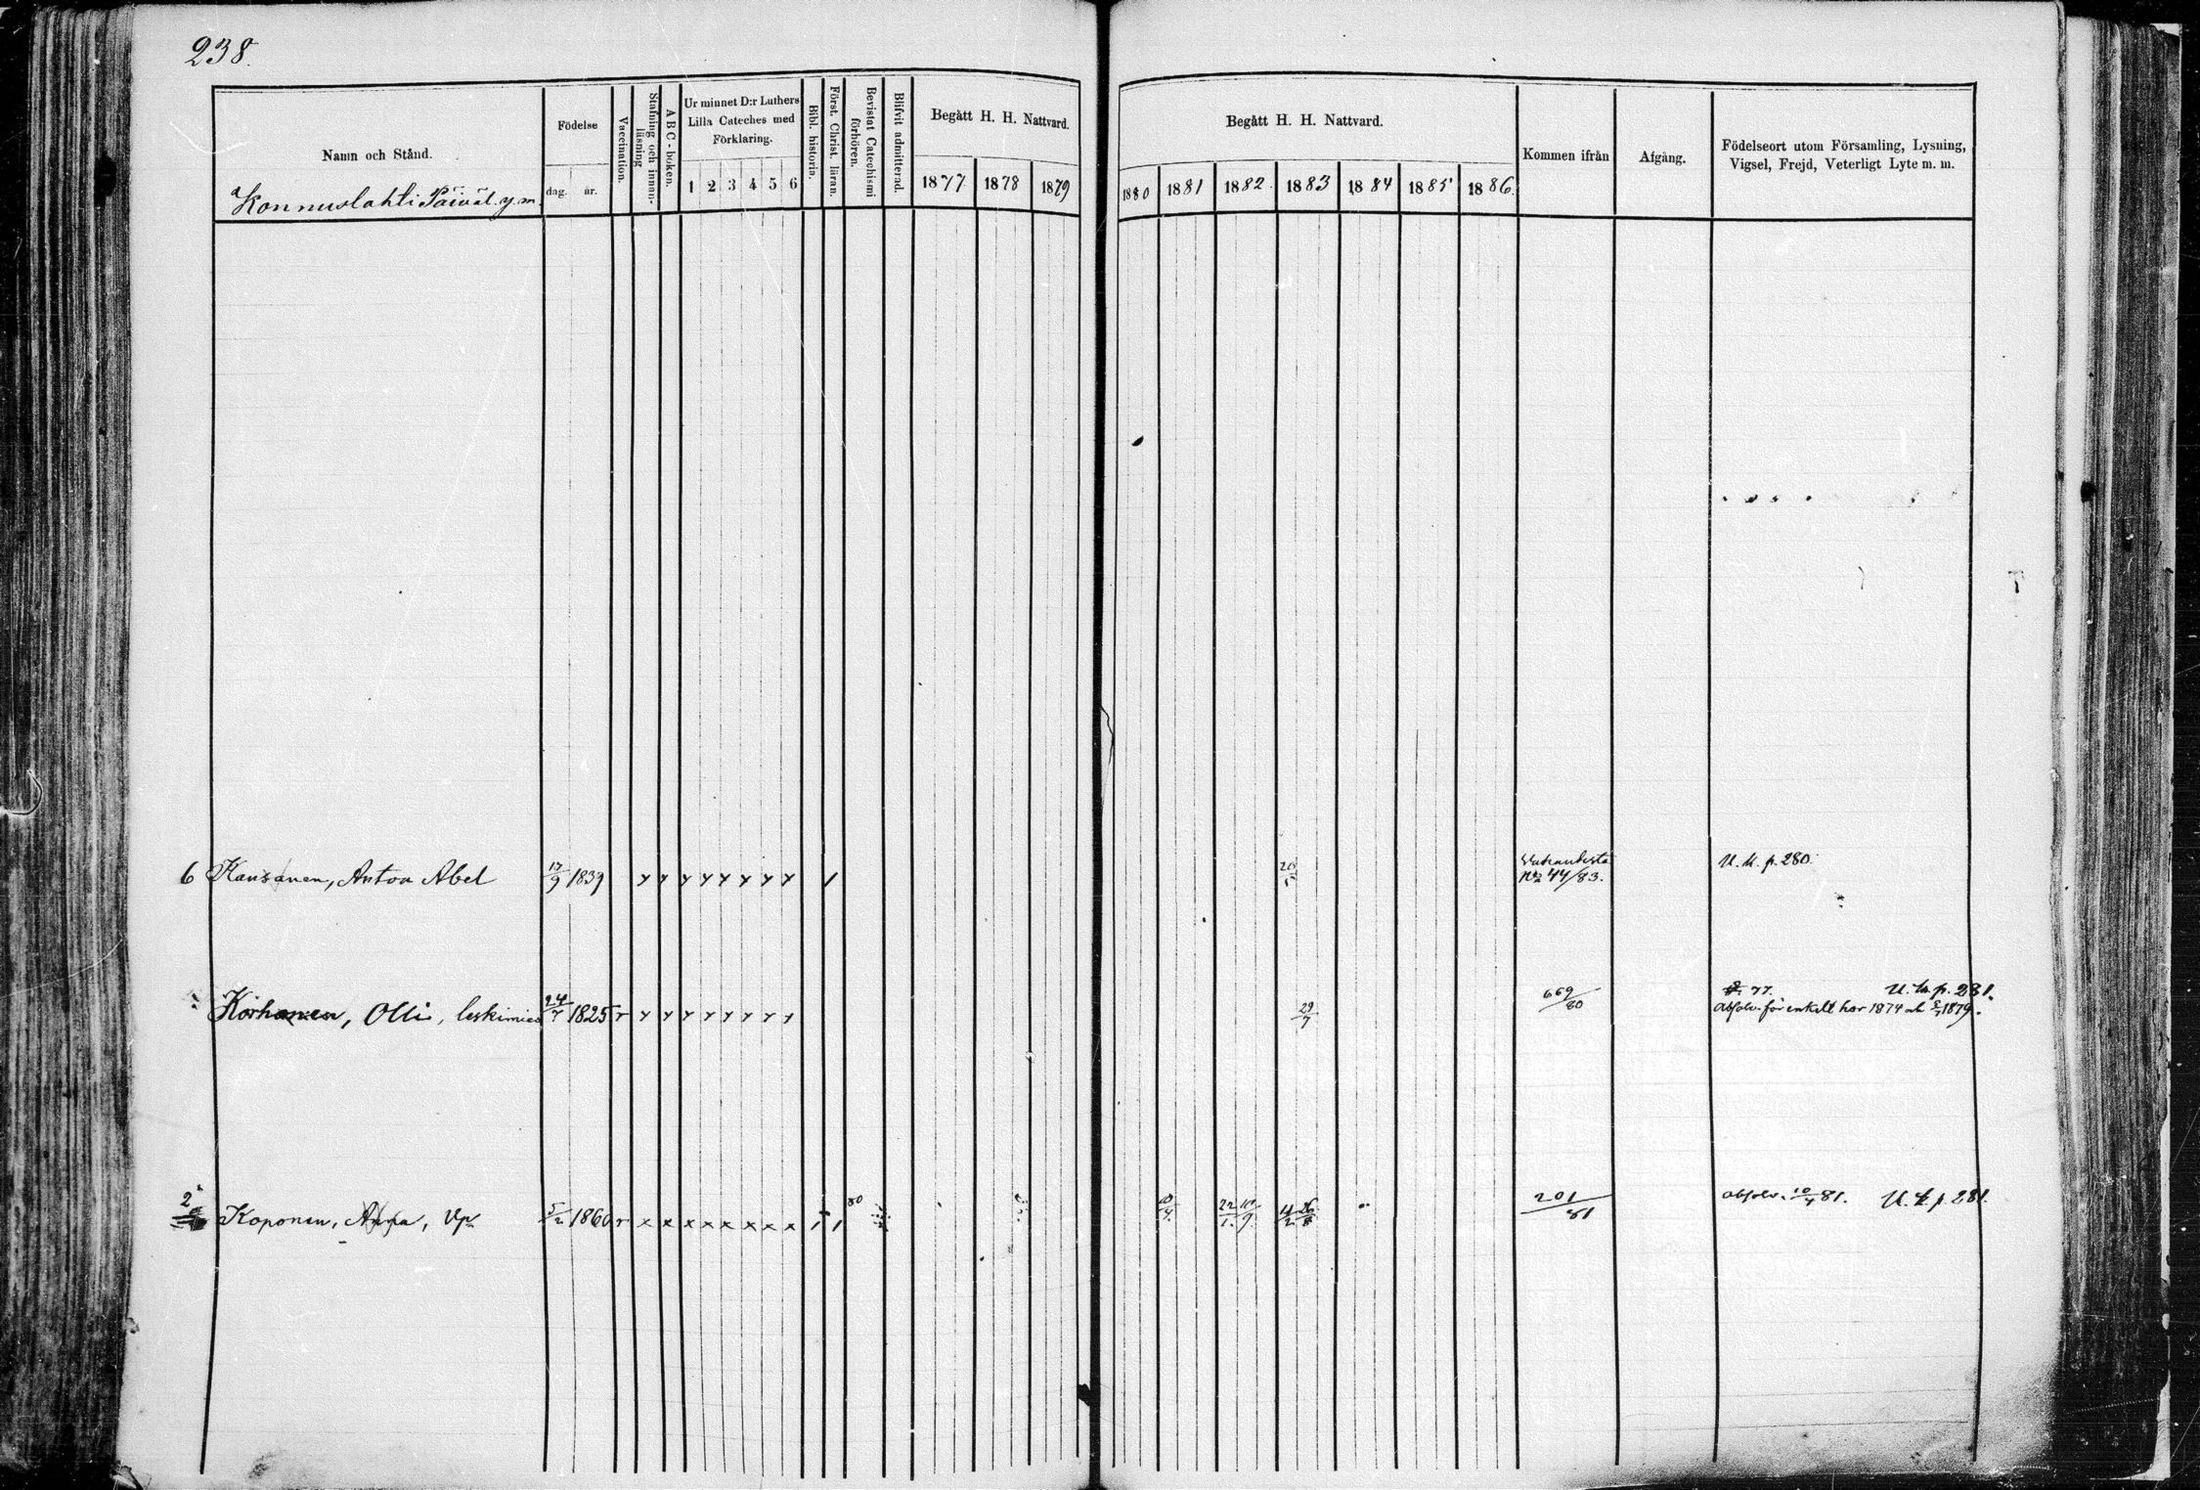 238.
Namn och Stånd.
Konnuslahti Päiväl. y. m.
Födelse
dag. år.
Vaccination.
Stafning och innanläsning
ABC-boken.
Ur minnet D:r Luthers Lilla Cateches med Förklaring.
1 2 3 4 5 6
Bibl. historia.
Först. Christ. läran.
Bevistat Catechismi förhören.
Blifvit admitterad.
Begått H. H. Nattvard.
1877 1878 1879
Begått H. H. Nattvard.
1880 1881 1882. 1883 1884 1885 1886.
Kommen ifrån
Afgång.
Födelseort utom Församling, Lysning,
Vigsel, Frejd, Veterligt Lyte m. m.
6 Kausanen, Anton Abel 17/9 1839 No 44/83. U. k. p. 280.
Korhonen, Olli, leskimies 24/7 1825 r 29/7 669/80 77. U. k. p. 281.
Absolv. för enkelt hor 1874 och 1879.
2 Koponen, Anna, Vp. 5/2 1860 r x x x x x x x x 80 10/4. 22/1. 9. 4/2 26/8 201/81 absolv. 10/4 81. U. k. p. 281.